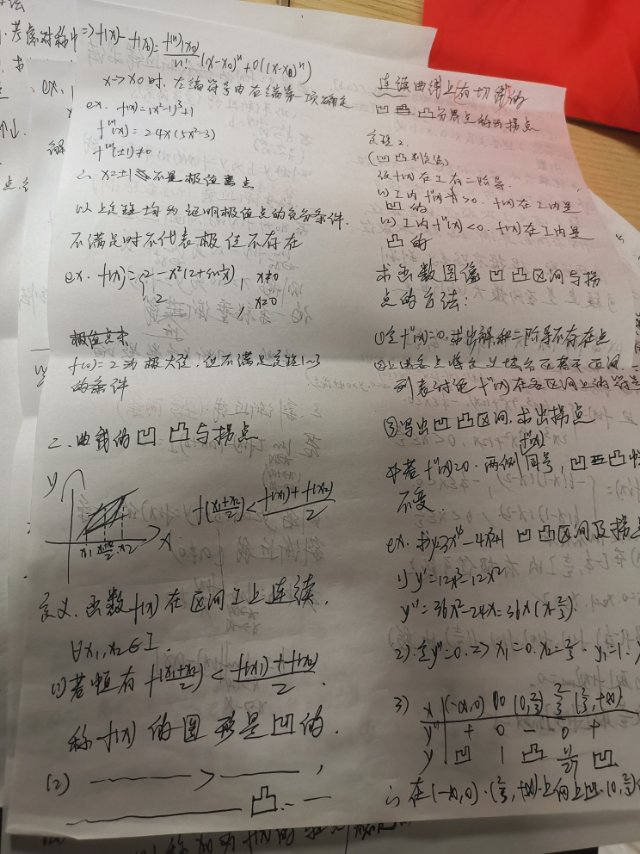 f(x)-f(x₀)=f⁽ⁿ⁾(x₀)/n!·(x-x₀)ⁿ+o((x-x₀)ⁿ)
x→x₀时,在
ex. f(x)=(x²-1)³+1
f'''(x)=24x(5x²-3)
f'''(±1)≠0
∴ x=±1 不是极值点
以上定理均为证明极值点的充分条件.
不满足时不代表极值不存在
ex. f(x)= 2-x²(2+sin 1/x), x≠0
2, x=0
f(0)=2为极大值,但不满足定理1~3
的条件
二.曲线的凹凸与拐点
y
x₁ (x₁+x₂)/2 x₂ x
f((x₁+x₂)/2)<(f(x₁)+f(x₂))/2
定义.函数f(x)在区间I上连续.
∀x₁,x₂∈I.
(1)若恒有f((x₁+x₂)/2)<(f(x₁)+f(x₂))/2
称f(x)的图形是凹的.
(2) ——— > ———,
——— 凸.
连续曲线上有切线的
凹凸分界点称为拐点
定理2.
(凹凸判定法)
设f(x)在I有二阶导.
(1)I内f''(x)>0. f(x)在I内是
凹的
(2)I内f''(x)<0. f(x)在I内是
凸的
求函数图像凹凸区间与拐
点的方法:
①令f''(x)=0.求出解和二阶导不存在点
列表讨论f''(x)在各区间上的符号
③写出凹凸区间.求出拐点
若f''(x₀)=0.两侧f''(x)同号,凹凸性
不变.
ex. 求y=3x⁴-4x³+1 凹凸区间及拐点
1) y'=12x³-12x².
y''=36x²-24x=36x(x-2/3).
2)令y''=0.=>x₁=0.x₂=2/3. y₁=1.
3) x (-∞,0) 0 (0,2/3) 2/3 (2/3,+∞)
y'' + 0 - 0 +
y 凹 1 凸 11/27 凹
∴在(-∞,0).(2/3,+∞)上向上凹.(0,2/3)